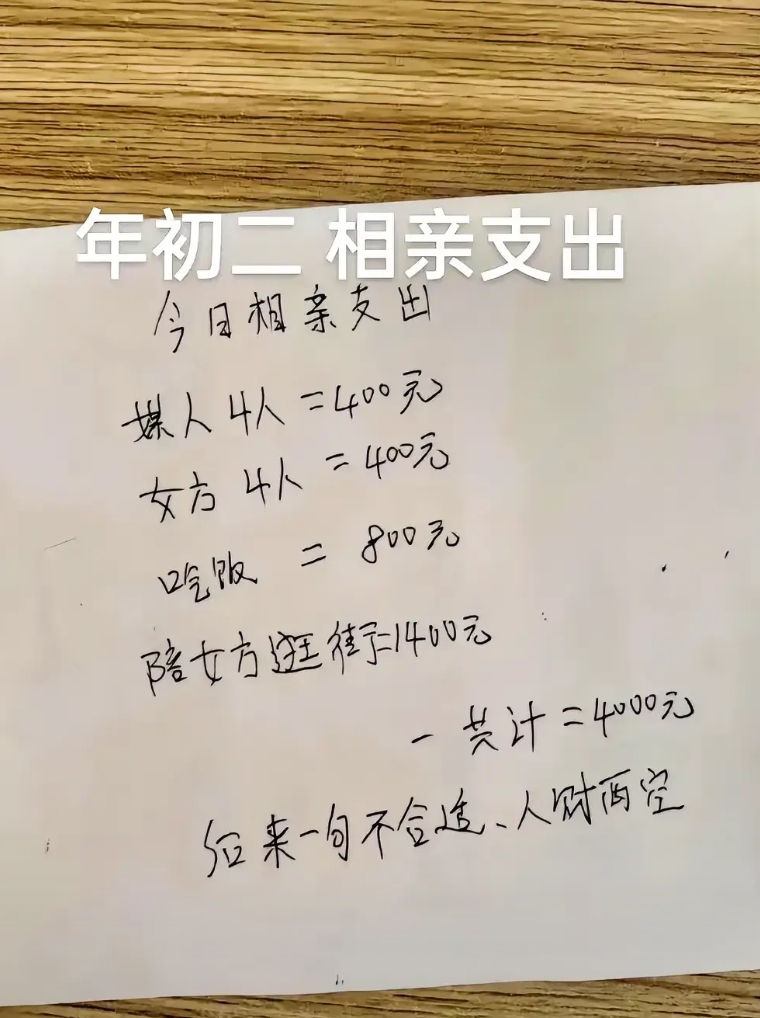 年初二 相亲支出
今日相亲支出
媒人 4人 =400元
女方 4人 =400元
吃饭 = 800元
陪女方逛街=1400元
一共计=4000元
后来一句不合适、人财两空